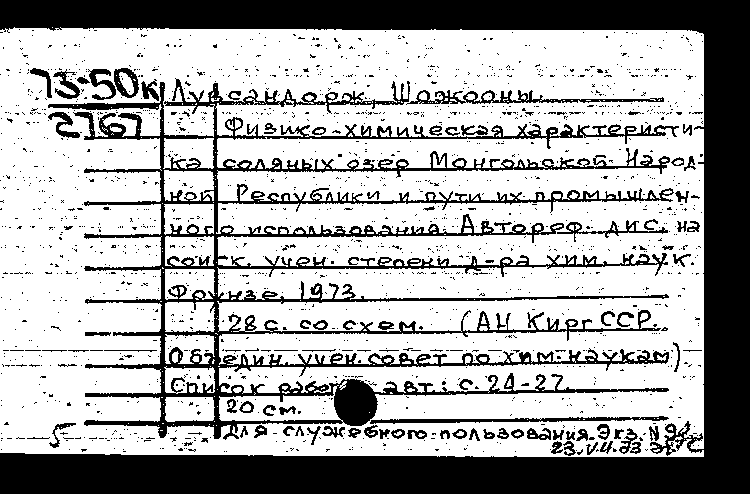 73-50к Лувсандорж, Шожооны.
2767 Физико-химическая характеристи-
ка соляных озер Монгольской Народ-
ной Республики и пути их промышлен-
ного использования. Автореф. дис. на
соиск. учен. степени д-ра хим. наук.
Фрунзе, 1973.
28 с. со схем. (АН Кирг ССР.
Объедин. учен. совет по хим. наукам).
Список работ авт.: с. 24-27.
20 см.
5 Для служебного пользования. Экз. N